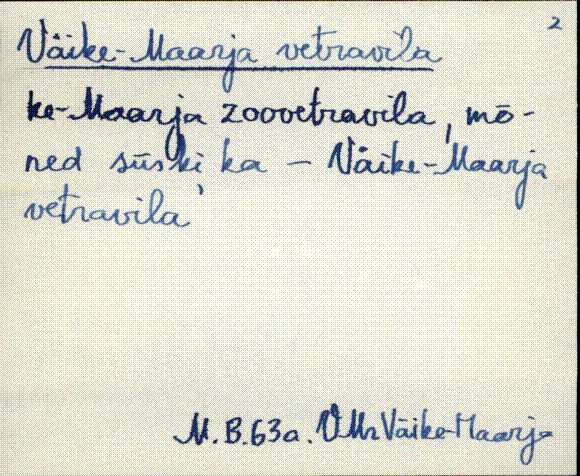 2
Väike-Maarja vetravila
ke-Maarja zoovetravila, mõ-
ned siiski ka - Väike-Maarja
vetravila
M.B.63a. VMr Väike-Maarja